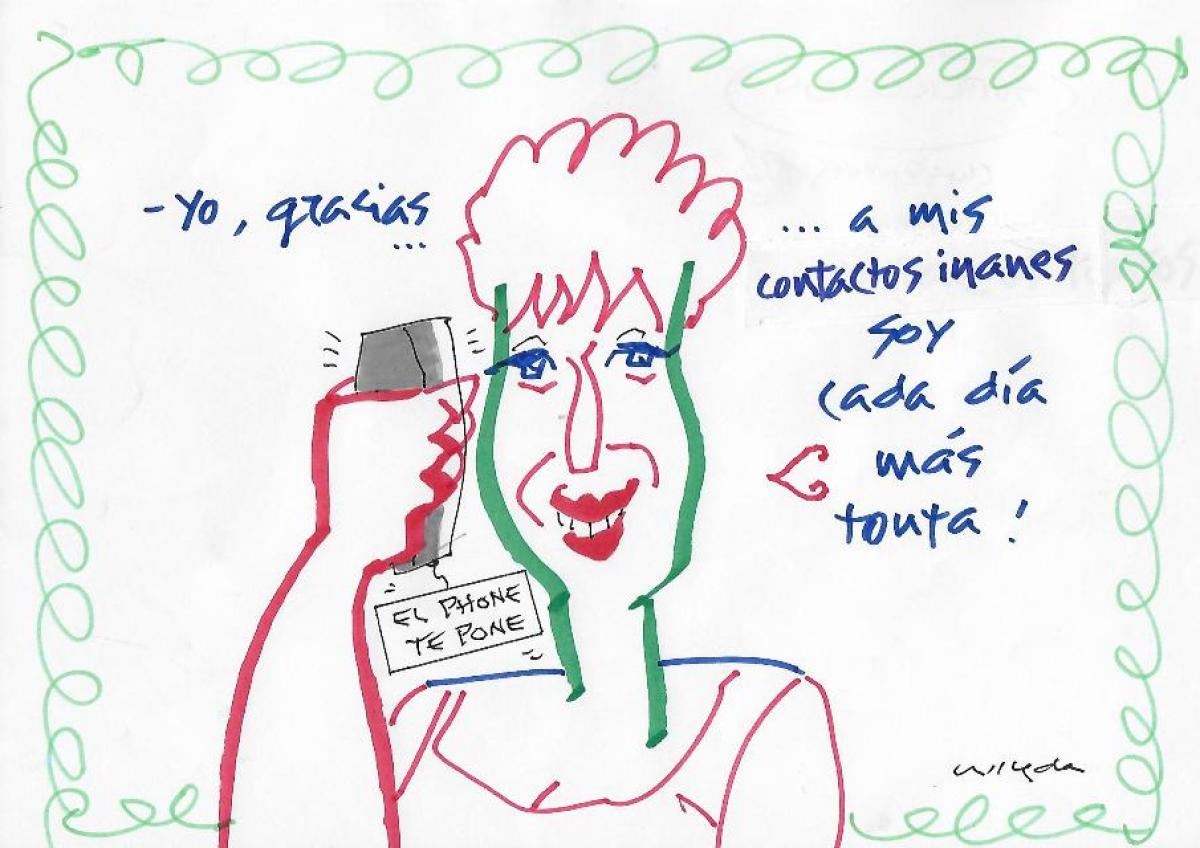 -Yo, gracias
...
... a mis
contactos inanes
soy
cada día
más
tonta!
EL PHONE
TE PONE